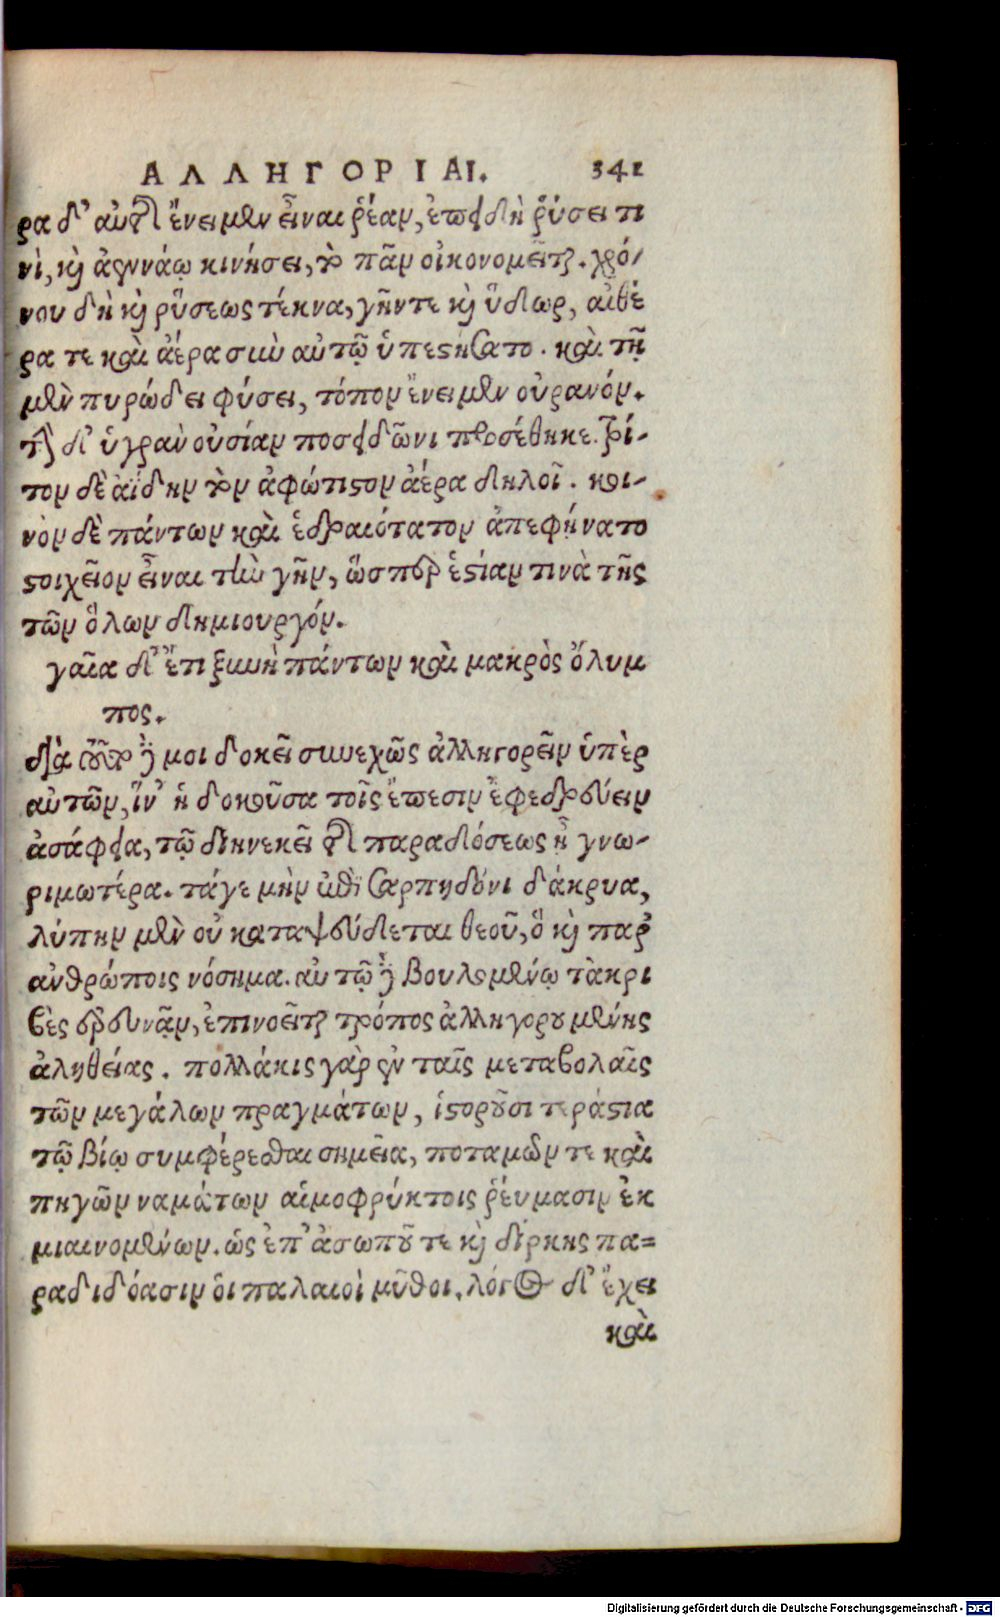 ΑΛΛΗΓΟΡΙΑΙ. 341
ρα δ' αὐτῆς ἔνειμεν εἶναι ῥέαν, ἐπειδὴ ῥύσει τι
νὶ, καὶ ἀεννάῳ κινήσει, τὸ πᾶν οἰκονομεῖται. χρό-
νου δὴ καὶ ρύσεως τέκνα, γῆν τε καὶ ὕδωρ, αἰθέ
ρα τε καὶ ἀέρα σὺν αὐτῷ ὑπεστήσατο. καὶ τῇ
μὲν πυρώδει φύσει, τόπον ἔνειμεν οὐρανόν.
τὴν δ' ὑγρὰν οὐσίαν ποσειδῶνι προσέθηκε. τρί-
τον δὲ ἀΐδην τὸν ἀφώτιστον ἀέρα δηλοῖ. κοι-
νὸν δὲ πάντων καὶ ἑδραιότατον ἀπεφήνατο
στοιχεῖον εἶναι τὴν γῆν, ὥσπερ ἑστίαν τινὰ τῆς
τῶν ὅλων δημιουργόν.
γαῖα δ' ἔτι ξυνὴ πάντων καὶ μακρὸς ὄλυμ
πος.
διὰ τοῦτο δέ μοι δοκεῖ συνεχῶς ἀλληγορεῖν ὑπὲρ
αὐτῶν, ἵν' ἡ δοκοῦσα τοῖς ἔπεσιν ἐφεδρεύειν
ἀσάφεια, τῷ διηνεκεῖ τῆς παραδόσεως ᾖ γνω-
ριμωτέρα. τάγε μὴν ἐπὶ Σαρπηδόνι δάκρυα,
λύπην μὲν οὐ καταψεύδεται θεοῦ, ὃ καὶ παρ'
ἀνθρώποις νόσημα. αὐτῷ δὲ βουλομένῳ τἀκρι
βὲς ἐρευνᾷν, ἐπινοεῖται τρόπος ἀλληγορουμένης
ἀληθείας. πολλάκις γὰρ ἐν ταῖς μεταβολαῖς
τῶν μεγάλων πραγμάτων, ἱστοροῦσι τεράστια
τῷ βίῳ συμφέρεσθαι σημεῖα, ποταμῶν τε καὶ
πηγῶν ναμάτων αἱμοφρύκτοις ῥεύμασιν ἐκ
μιαινομένων. ὡς ἐπ' ἀσωποῦ τε καὶ δίρκης πα-
ραδιδόασιν οἱ παλαιοὶ μῦθοι. λόγος δ' ἔχει
καὶ
Digitalisierung gefördert durch die Deutsche Forschungsgemeinschaft - DFG